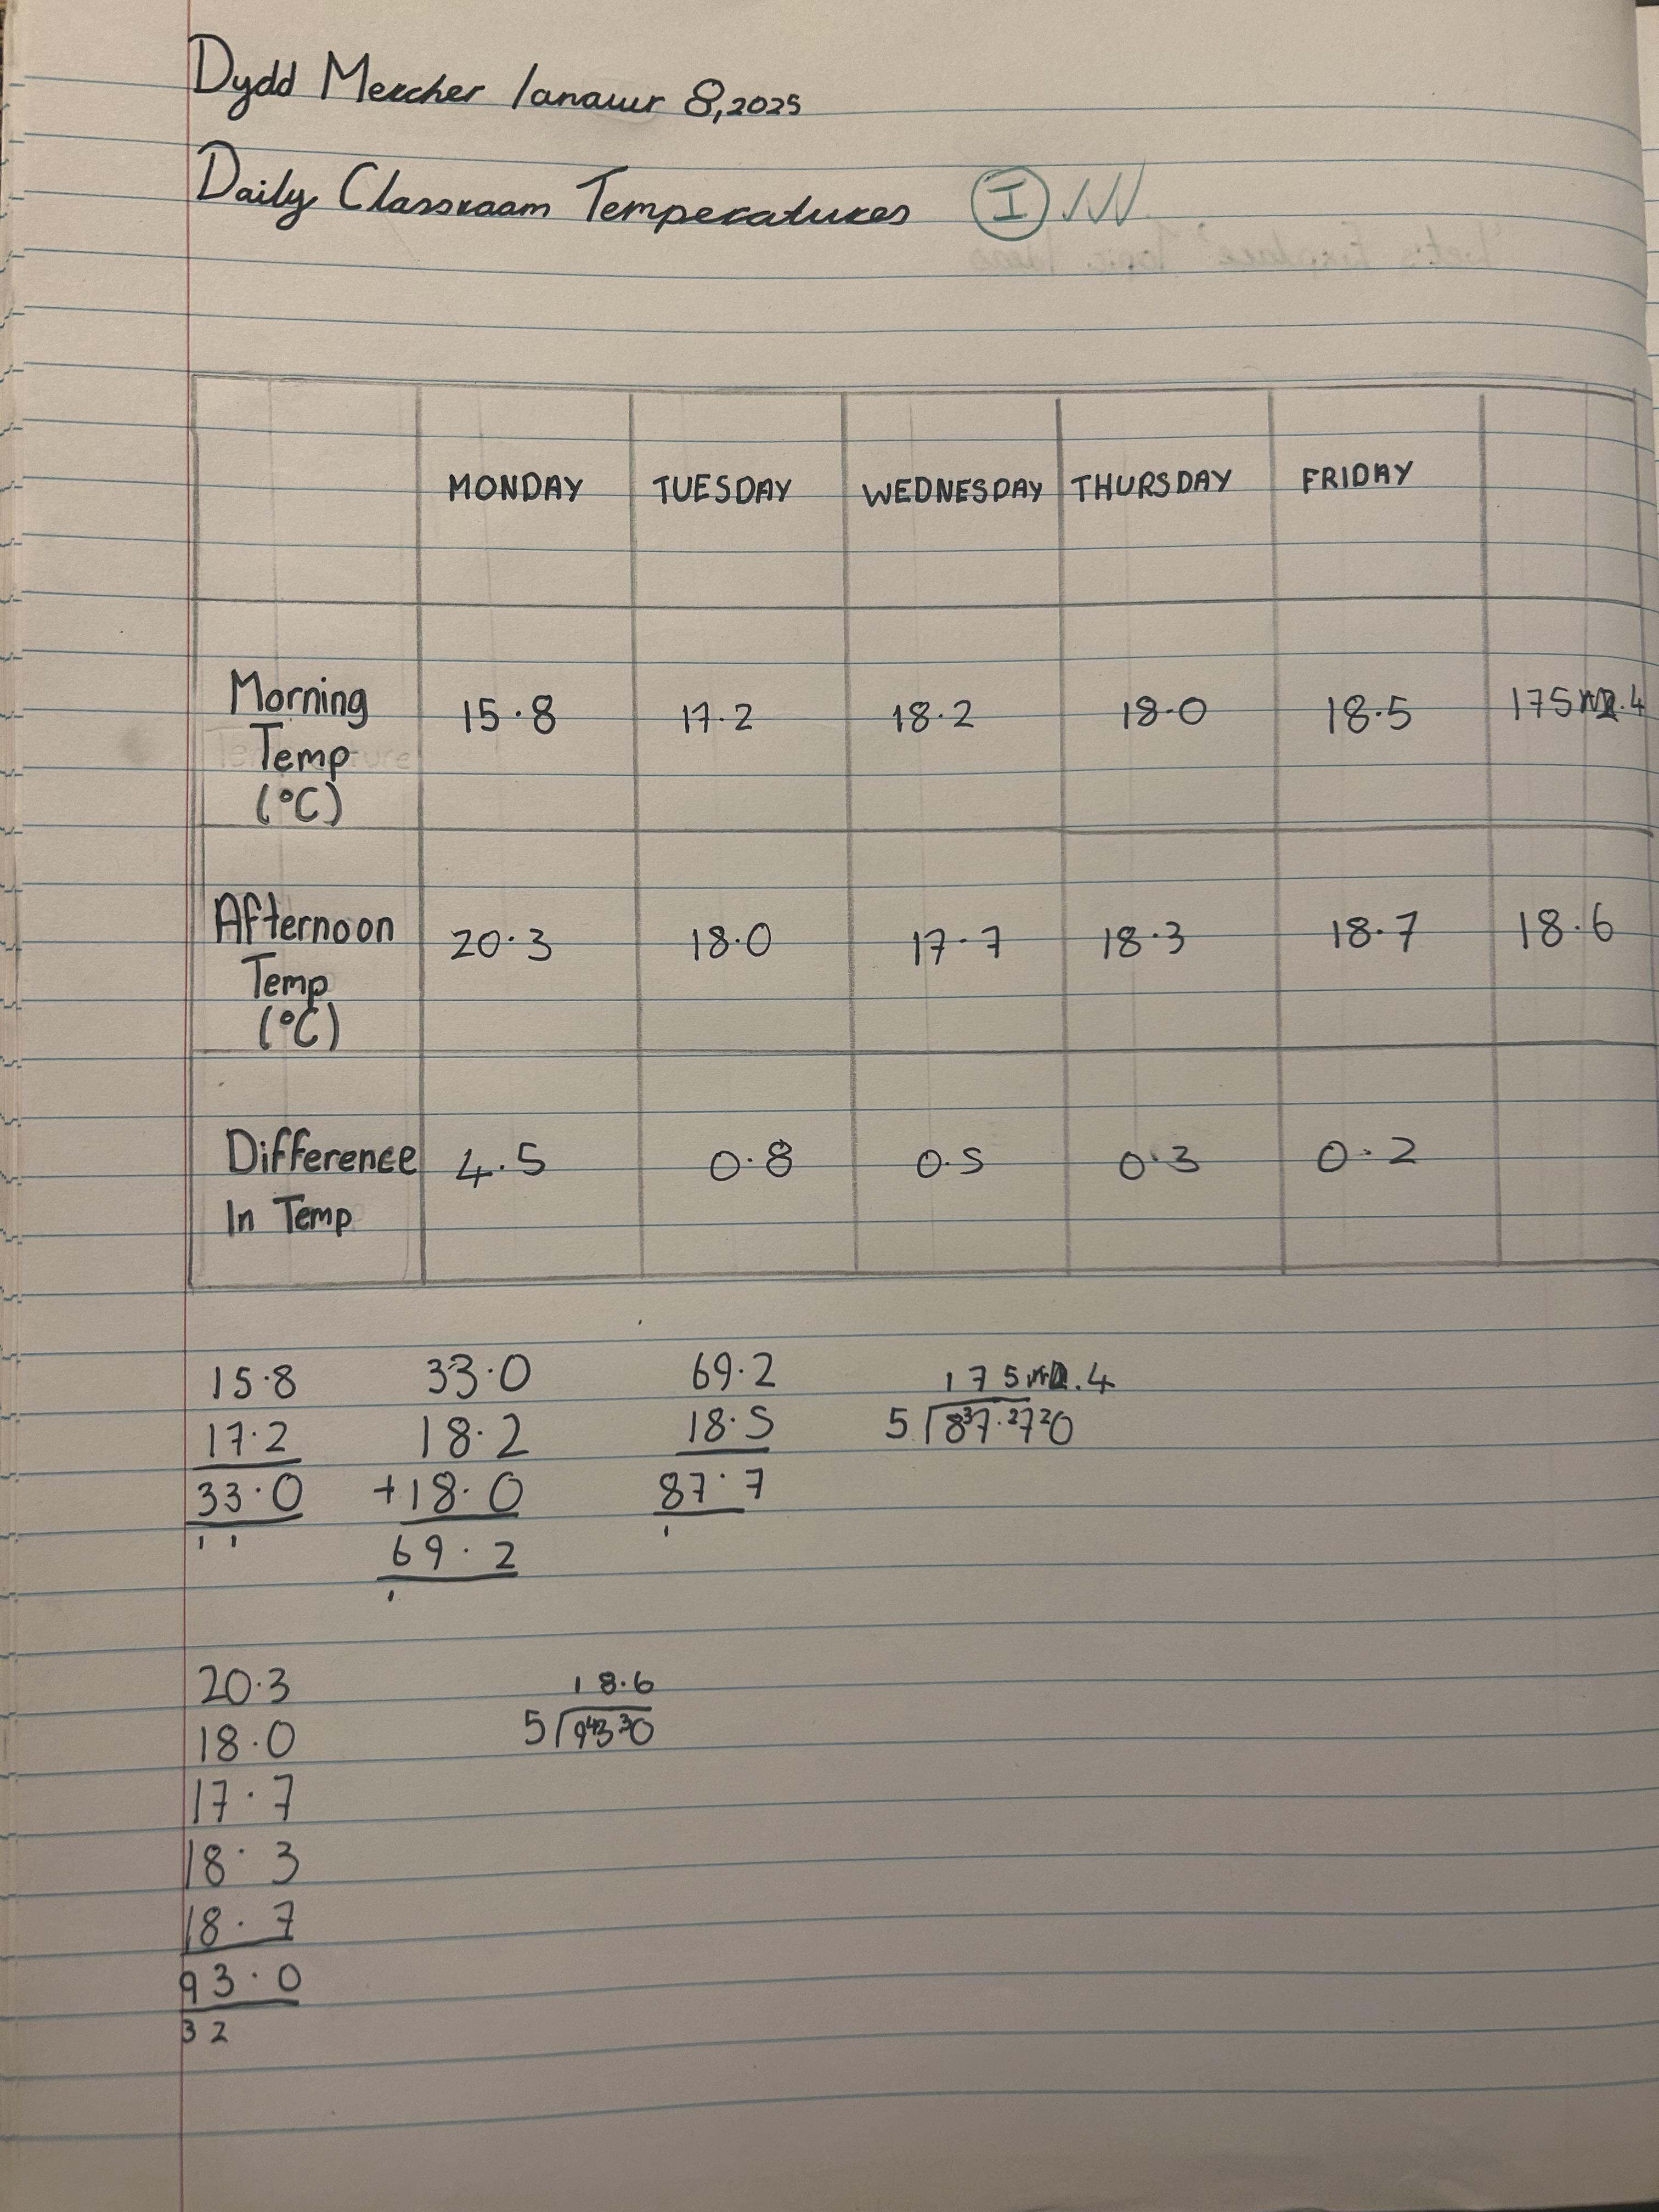 Dydd Mercher Ionawr 8, 2025
Daily Classroom Temperatures I
MONDAY TUESDAY WEDNESDAY THURSDAY FRIDAY
Morning Temp (°C) 15.8 17.2 18.2 18.0 18.5 175 .4
Afternoon Temp (°C) 20.3 18.0 17.7 18.3 18.7 18.6
Difference In Temp 4.5 0.8 0.5 0.3 0.2
15.8 33.0 69.2 175 .4
17.2 18.2 18.5 5 87.770
33.0 +18.0 87.7
1 1 69.2 1
1
20.3 18.6
18.0 5 9330
17.7
18.3
18.7
93.0
32